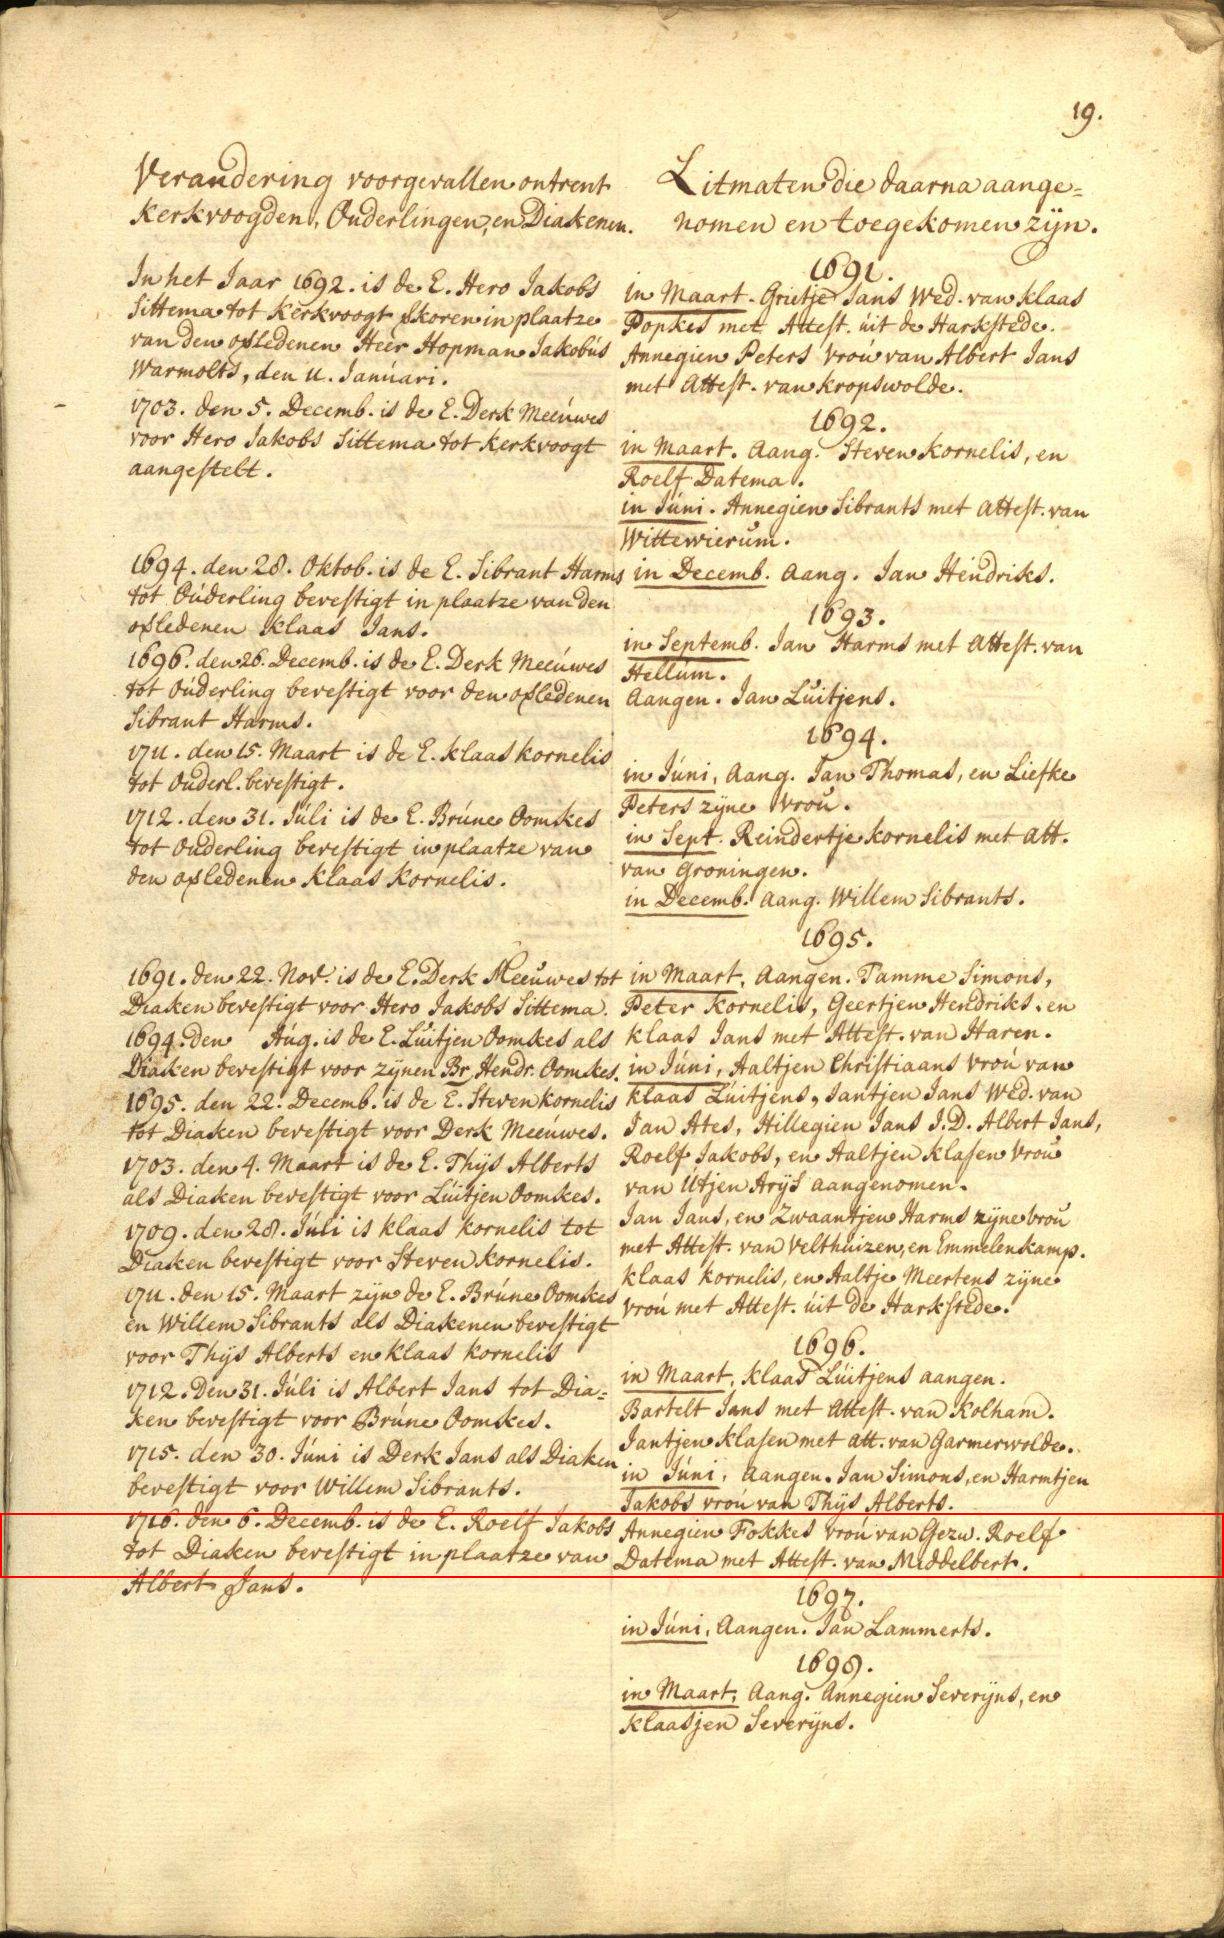 19.
Verandering voorgevallen ontrent
Kerkvoogden, Ouderlingen, en Diakenen.
In het Jaar 1692. is de E. Hero Jakobs
Sittema tot Kerkvoogt gkoren in plaatze
van den ofledenen Heer Hopman Jakobús
Warmolts, den 11. Janúari.
1703. den 5. Decemb. is de E. Derk Meeúwes
voor Hero Jakobs Sittema tot Kerkvoogt
aangestelt.
1694. den 28. Oktob. is de E. Sibrant Harms
tot Oúderling bevestigt in plaatze van den
ofledenen Klaas Jans.
1696. den 26. Decemb. is de E. Derk Meeúwes
tot Oúderling bevestigt voor den ofledenen
Sibrant Harms.
1711. den 15. Maart is de E. Klaas Kornelis
tot Ouderl. bevestigt.
1712. den 31. Júli is de E. Brúne Oomkes
tot Ouderling bevestigt in plaatze van
den ofledenen Klaas Kornelis.
1691. den 22. Nov. is de E. Derk Meeuwes tot
Diaken bevestigt voor Hero Jakobs Sittema.
1694. den Aúg. is de E. Lúitjen Oomkes als
Diaken bevestigt voor zijnen Br. Hendr. Oomkes.
1695. den 22. Decemb. is de E. Steven Kornelis
tot Diaken bevestigt voor Derk Meeúwes.
1703. den 4. Maart is de E. Thijs Alberts
als Diaken bevestigt voor Lúitjen Oomkes.
1709. den 28. Júli is Klaas Kornelis tot
Diaken bevestigt voor Steven Kornelis.
1711. den 15. Maart zijn de E. Brúne Oomkes
en Willem Sibrants als Diakenen bevestigt
voor Thijs Alberts en Klaas Kornelis
1712. Den 31. Júli is Albert Jans tot Dia=
ken bevestigt voor Brúne Oomkes.
1715. den 30. Júni is Derk Jans als Diaken
bevestigt voor Willem Sibrants.
1716. den 6. Decemb. is de E. Roelf Jakobs
tot Diaken bevestigt in plaatze van
Albert Jans.
Litmaten die daarna aange=
nomen en toegekomen zijn.
1691.
in Maart. Grietje Jans Wed. van Klaas
Popkes met Attest. úit de Harkstede.
Annegien Peters Vroú van Albert Jans
met Attest. van Kropswolde.
1692.
in Maart. Aang. Steven Kornelis, en
Roelf Datema.
in Júni. Annegien Sibrants met Attest. van
Wittewierum.
in Decemb. Aang. Jan Hendriks.
1693.
in Septemb. Jan Harms met Attest. van
Hellúm.
Aangen. Jan Lúitjens.
1694.
in Júni, Aang. Jan Thomas, en Liefke
Peters zijne vroú.
in Sept. Reindertje Kornelis met Att.
van Groningen.
in Decemb. Aang. Willem Sibrants.
1695.
in Maart, Aangen. Tamme Simons,
Peter Kornelis, Geertjen Hendriks. en
Klaas Jans met Attest. van Haren.
in Júni, Aaltjen Christiaans vroú van
Klaas Lúitjens, Jantjen Jans Wed. van
Jan Ates, Hillegien Jans J.D. Albert Jans,
Roelf Jakobs, en Aaltjen Klasen Vroú
van Útjen Arijs aangenomen.
Jan Jans, en Zwaantjen Harms zijne vroú
met Attest. van Velthuizen, en Emmelenkamp.
Klaas Kornelis, en Aaltje Meertens zijne
Vroú met Attest. úit de Harkstede.
1696.
in Maart, Klaas Lúitjens aangen.
Bartelt Jans met Attest. van Kolham.
Jantjen Klasen met att. van Garmerwolde.
in Júni, Aangen. Jan Simons, en Harmtjen
Jakobs vroú van Thijs Alberts.
Annegien Fokkes vroú van Gezw. Roelf
Datema met Attest. van Middelbert.
1697.
in Júni, Aangen. Jan Lammerts.
1698.
in Maart, Aang. Annegien Severijns, en
Klaasjen Severijns.